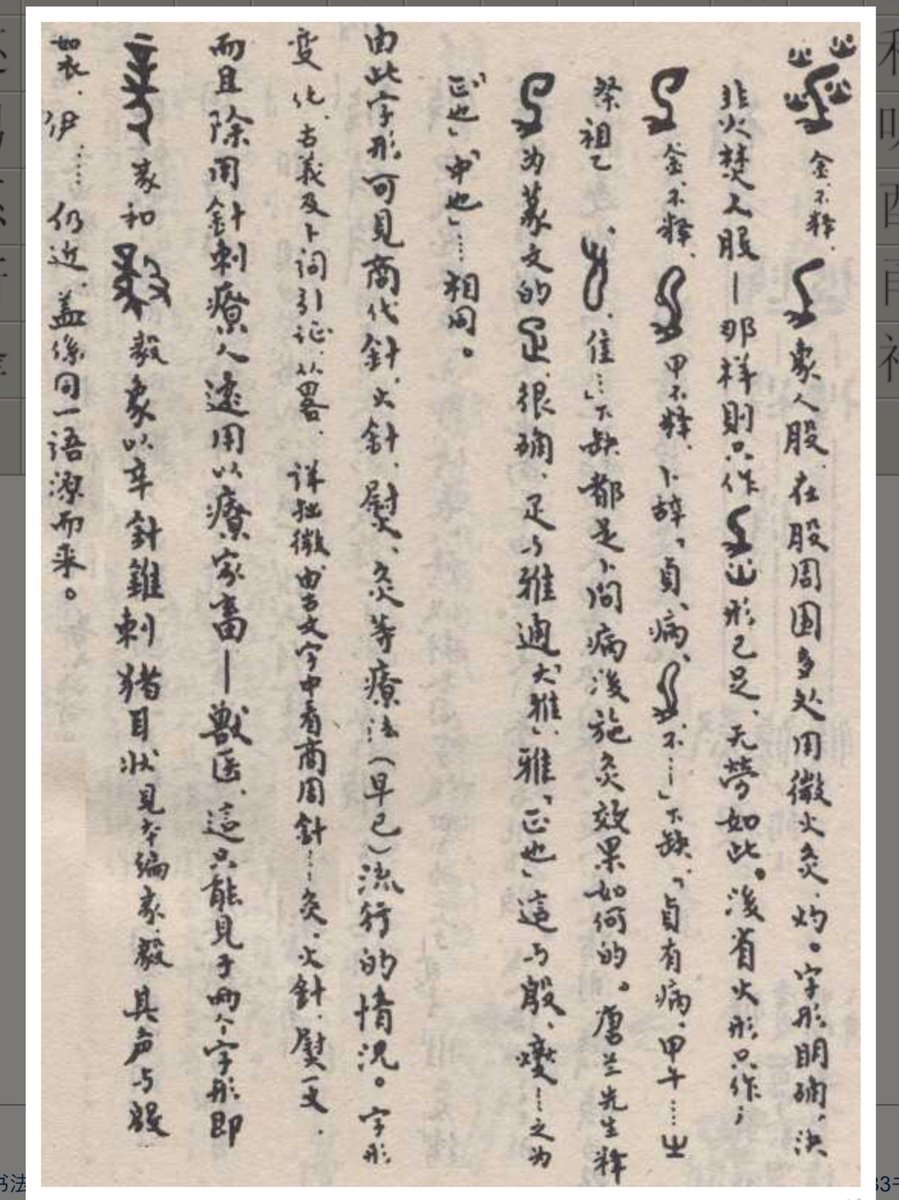 金不释、象人股、在股周围多处用微火灸、灼。字形明确、决
非火焚人股—那样则只作形已足、无劳如此。后省火形只作；
金、不释、甲不释、卜辞「贞、病、不…」下缺、「贞有病、甲午…㞢
祭祖乙、隹…」下缺都是卜问病后施灸效果如何的。唐兰先生释
为篆文的疋、很确、疋与雅通、「大雅」、雅、「正也」這与殷、燮…之为
「正也」「中也」…相同。
由此字形可見商代針、火針、熨、灸等療法（早已）流行的情況。字形
变化、古義及卜詞引证、从畧、详拙微、由古文字中看商周針…灸、火針、熨一文、
而且除用針刺療人遠用以療家畜—獸医、這只能見于两个字形即
豙和毅、毅象以辛針錐刺猪目状見本编豙、毅其声与殷
如衣、伊……仍近、盖係同一语源而来。